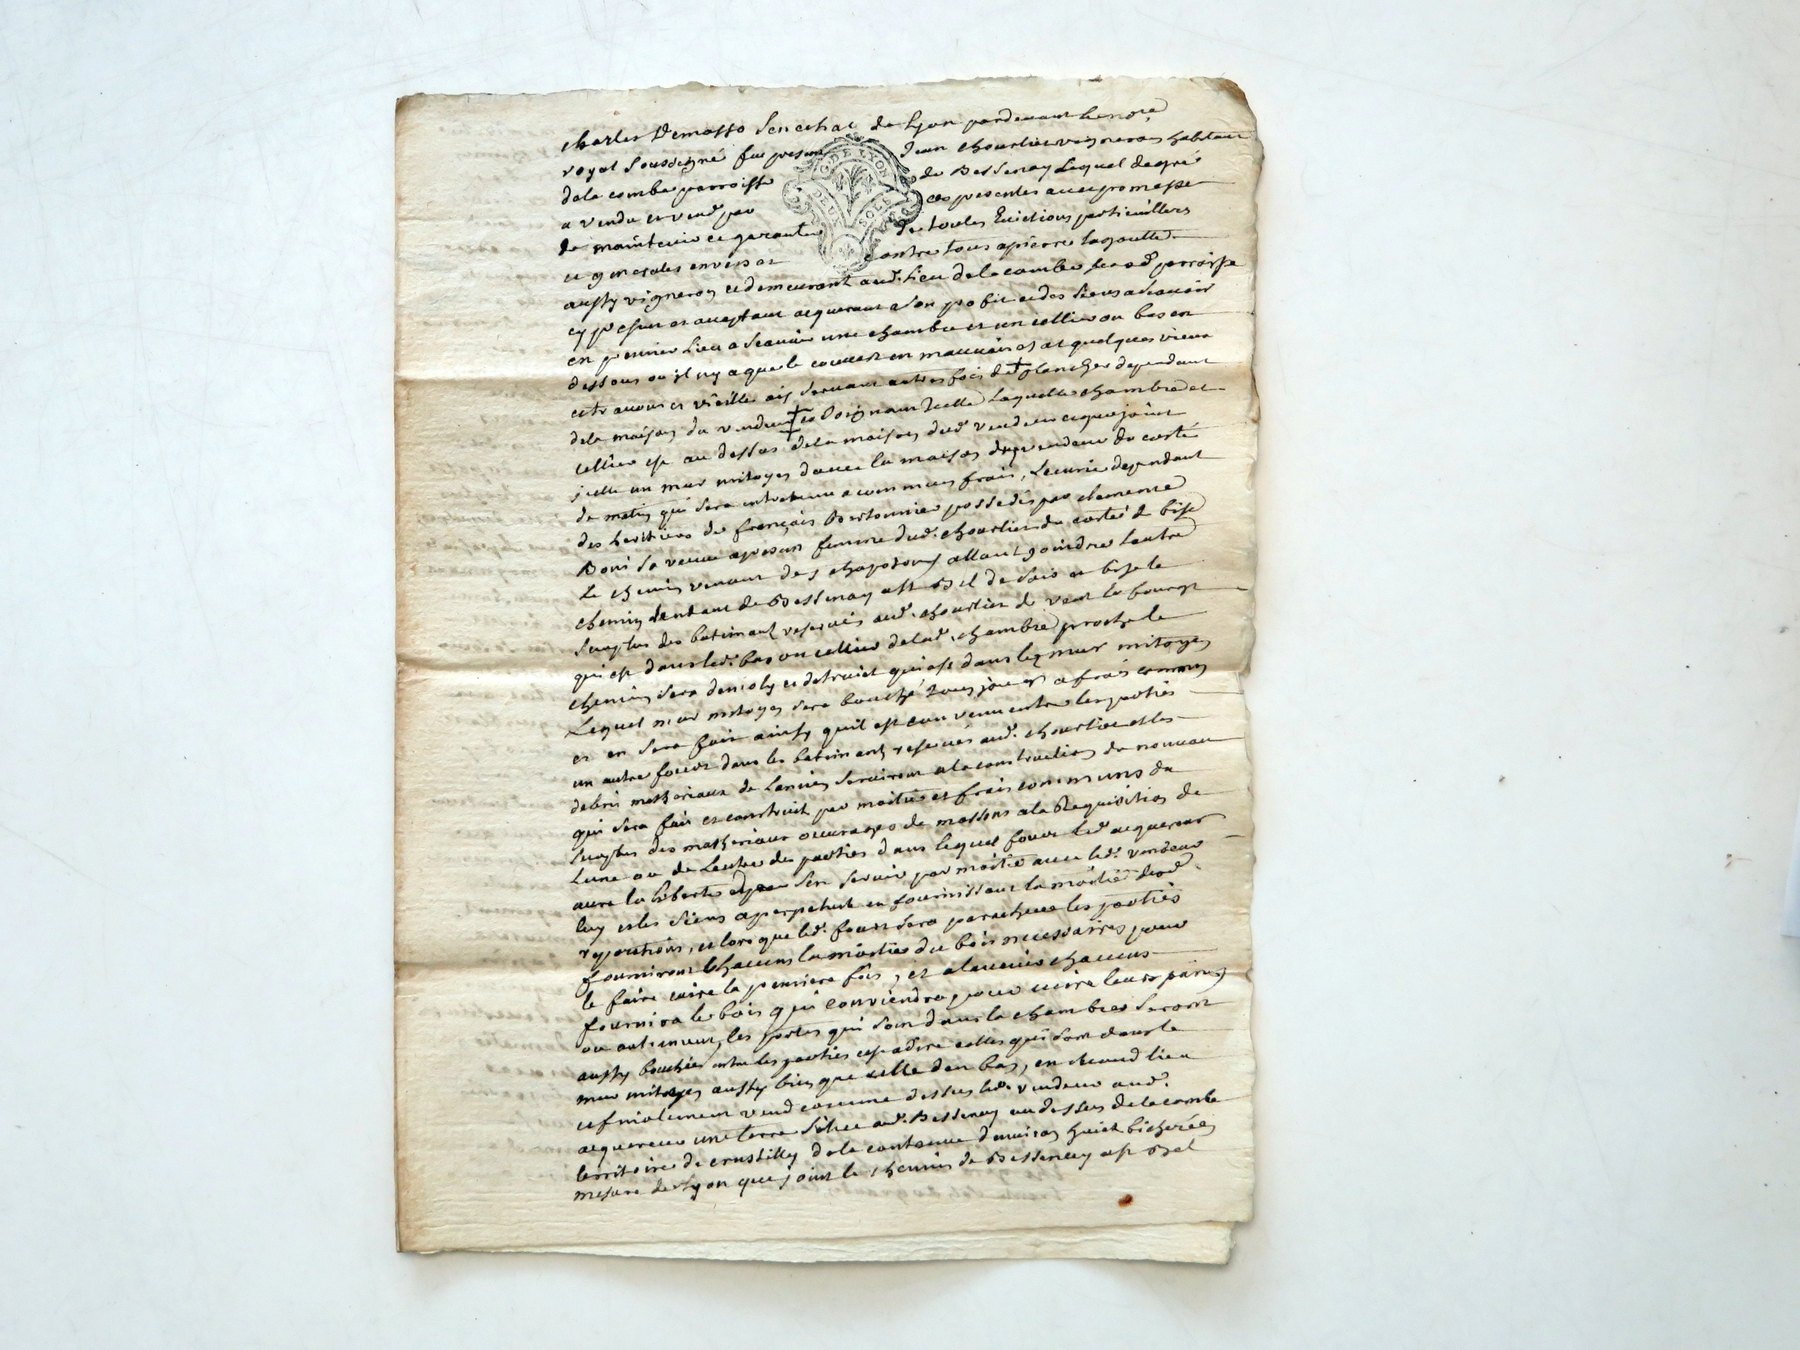 Charles Demasso Senechal de Lyon pardevant le no.re
royal Soussigné fut present Jean chourlier vigneron habitant
GDE LYON
dela combe parroisse de Bessenay Lequel de gré
a vendu et vend par ces presentes avec promesse
DEUX SOLS
de maintenir et garantir de toutes Evictions particuillers
et generales envers et contre tous a pierre lagoutte
aussy vigneron et demeurant aud. lieu de la combe susd. parroisse
cy present et acceptant acquerant a son profit et des siens a scavoir
en premier Lieu a scavoir une chambre et un cellier ou bas en
dessous ou il ny a que le couvert en mauvais et at quelques vieux
et travons et vieille ais servant autres fois de planches dependant
dela maison du vendeur et Joignant Icelle Laquelle chambre et
cellier est au dessus dela maison dud. vendeur et que joint
jcelle un mur mitoyen davec la maison du vendeur du costé
de matin qui sera entretenu a commun frais, Lecurie dependant
des heritiers de françois Bertonnier possedés par clemence
Boni sa veuve apresent femme dud. chourlier du costé de bise
Le chemin venant des chapotons allant joindre lautre
chemin tendant de Bessenay a St Bel de soir et bize le
surplus des batimant reservés aud. chourlier de vent le fourt
qui est dans led. bas ou cellier de lad. chambre proche le
chemin sera demoly et detruict qui est dans le mur mitoyen
Lequel mur mitoyen sera bouché tous jours a frais commun
et en sera fait ainsy quil est convenu entre les parties
un autre fourt dans les batimant reservés aud. chourlier et les
debris matteriaux de lancien serviront a la construction du nouveau
qui sera fait et construit par moitié et frais communs du
surplus des matteriaux ouvrages de massons a la Requisition de
Lune ou de Lautre des parties dans lequel fourt led. acquereur
aura la liberté de sen servir par moitié avec led. vendeur
luy et les siens a perpetuit en fournissant la moitié desd.
reparations, et lors que led. fourt sera parachevé les parties
fourniront chacuns la moitié du bois necessaires pour
le faire cuire la premiere fois, et a lavenir chacuns
fournira le bois qui conviendra pour cuire leurs pains
ou autrement, les portes qui sont dans la chambres seront
aussy bouchées entre les parties cest adire celles qui sont dans le
mur mitoyen aussy bien que celle den bas, en second lieu
et finalement vend comme dessus led. vendeur aud.
acquereur une terre située aud. Bessenay au dessus de la combe
territoire de crustilly dela contenue denviron huict bicherées
mesure de Lyon que joint le chemin de Bessenay a St Bel